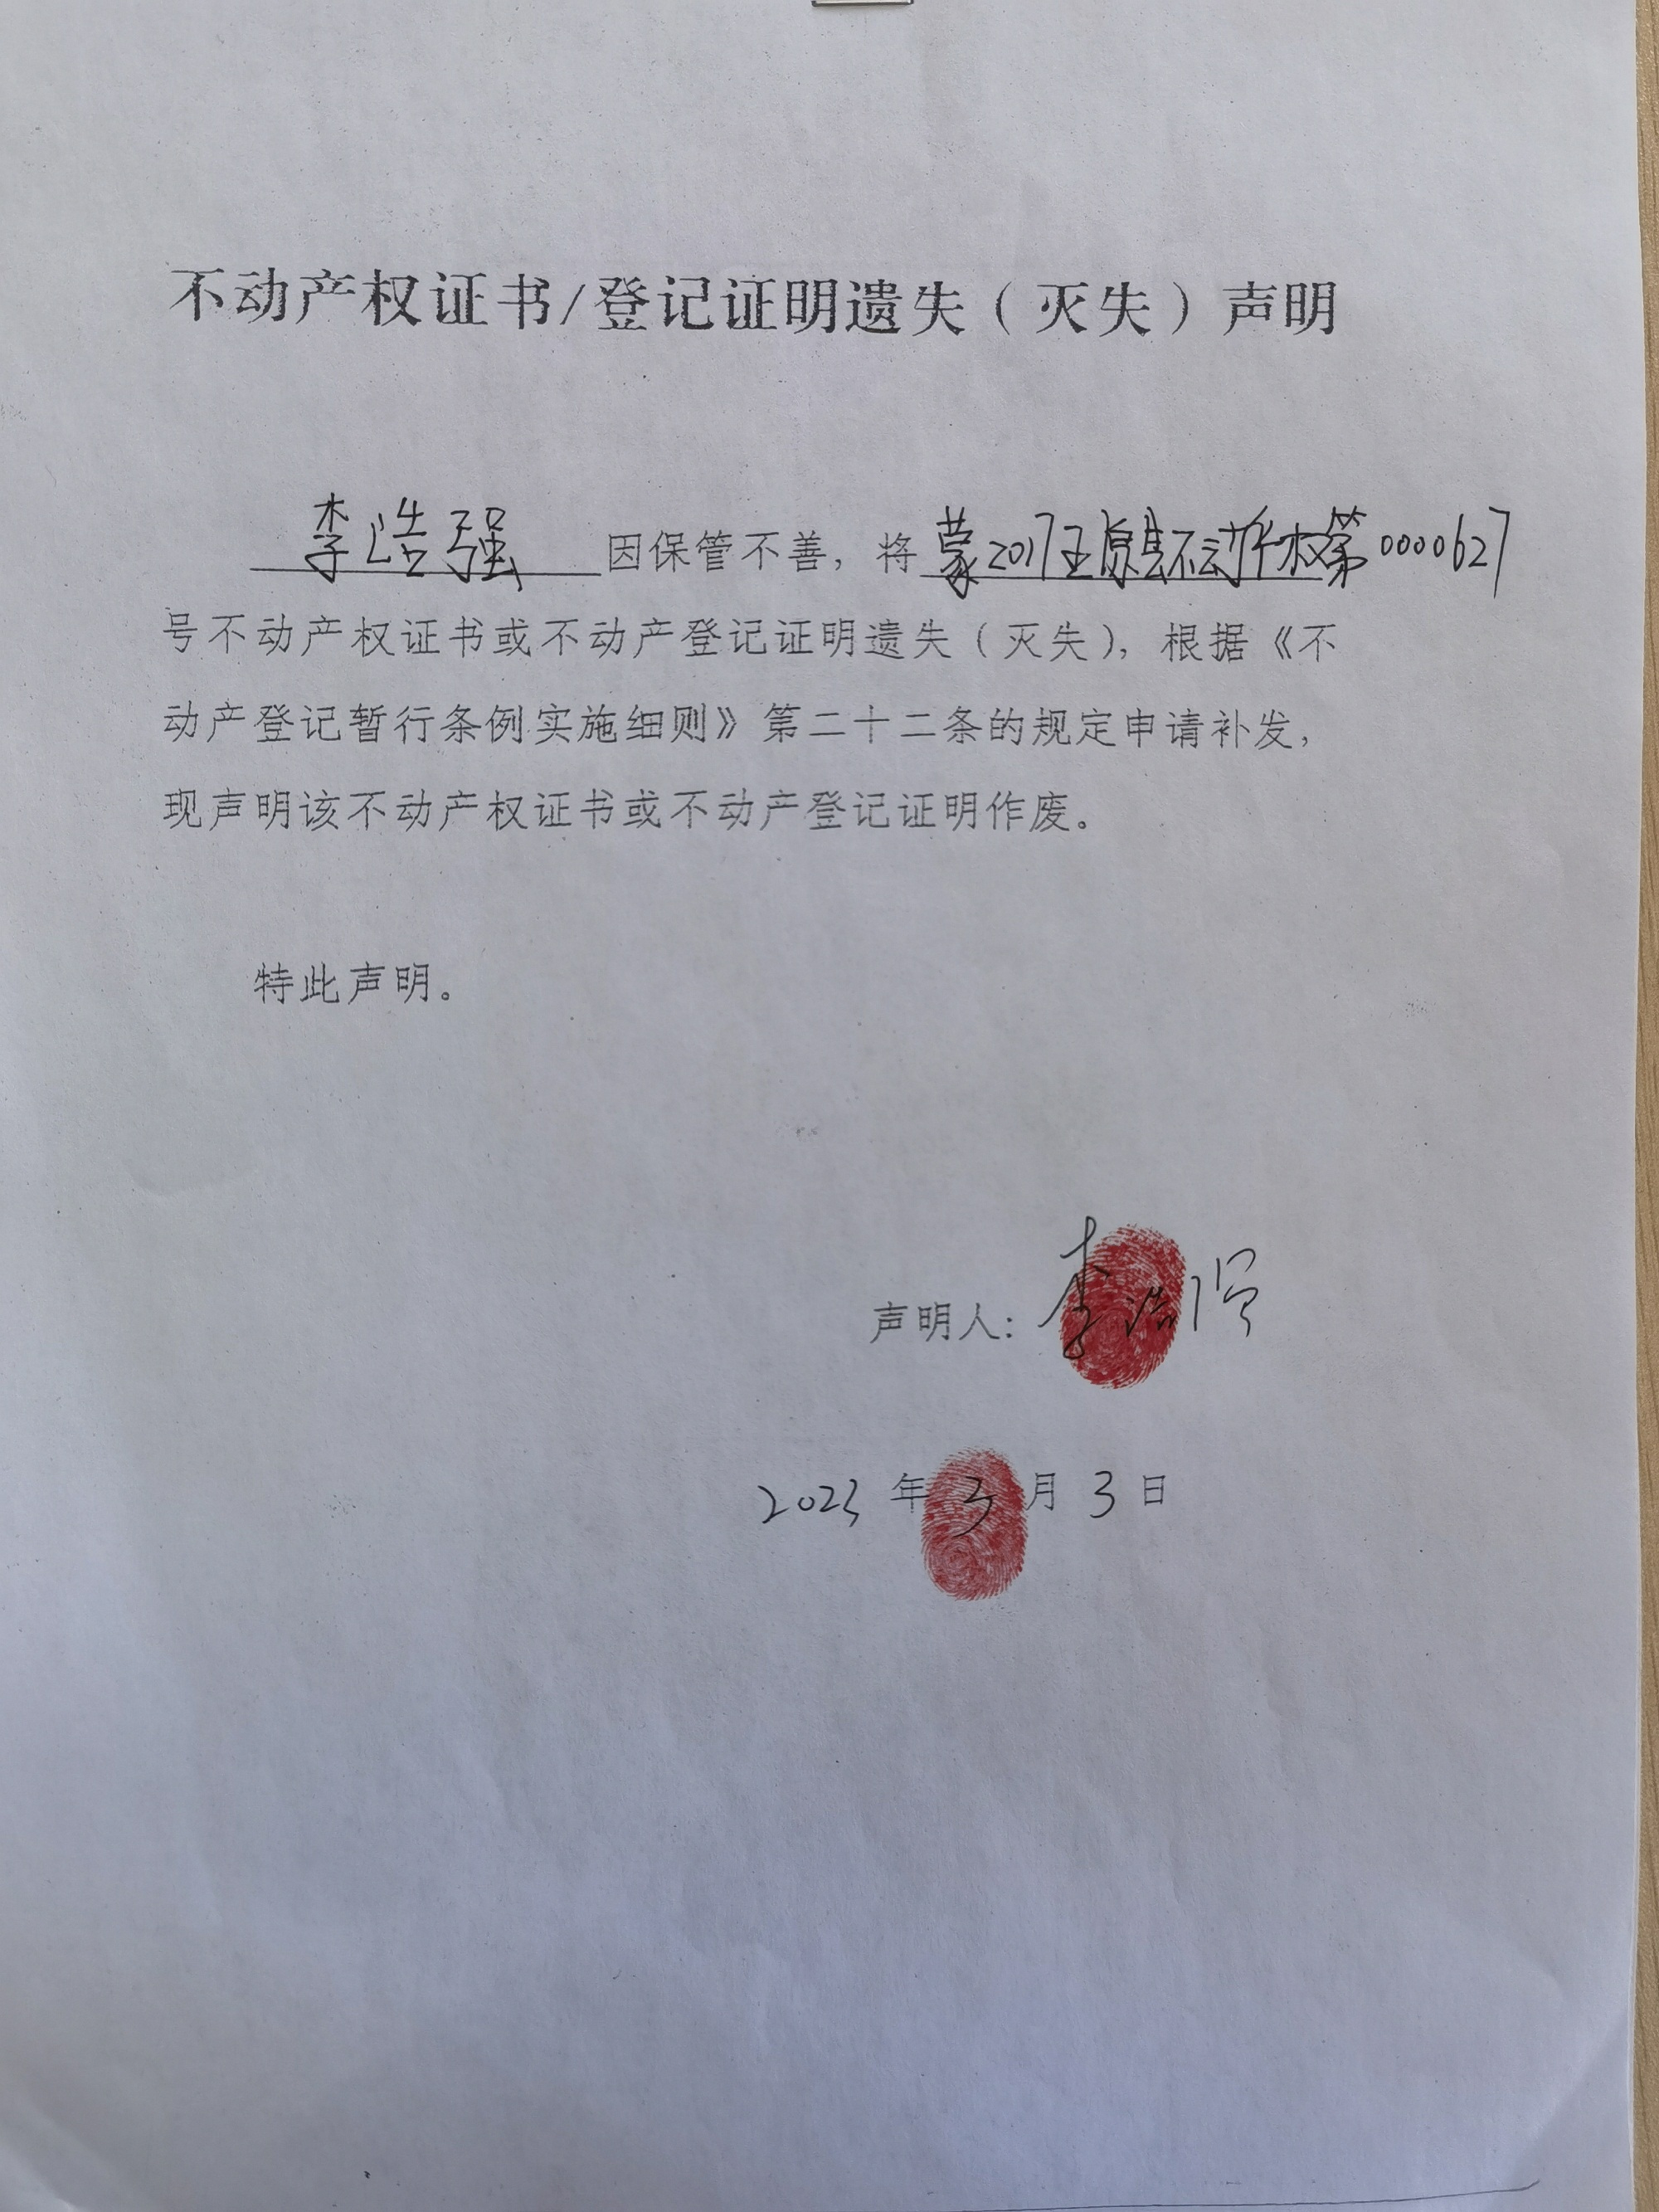 不动产权证书/登记证明遗失（灭失）声明
李浩强因保管不善，将蒙2017五原县不动产权第0000627
号不动产权证书或不动产登记证明遗失（灭失），根据《不
动产登记暂行条例实施细则》第二十二条的规定申请补发，
现声明该不动产权证书或不动产登记证明作废。
特此声明。
声明人：李浩强
2023年3月3日